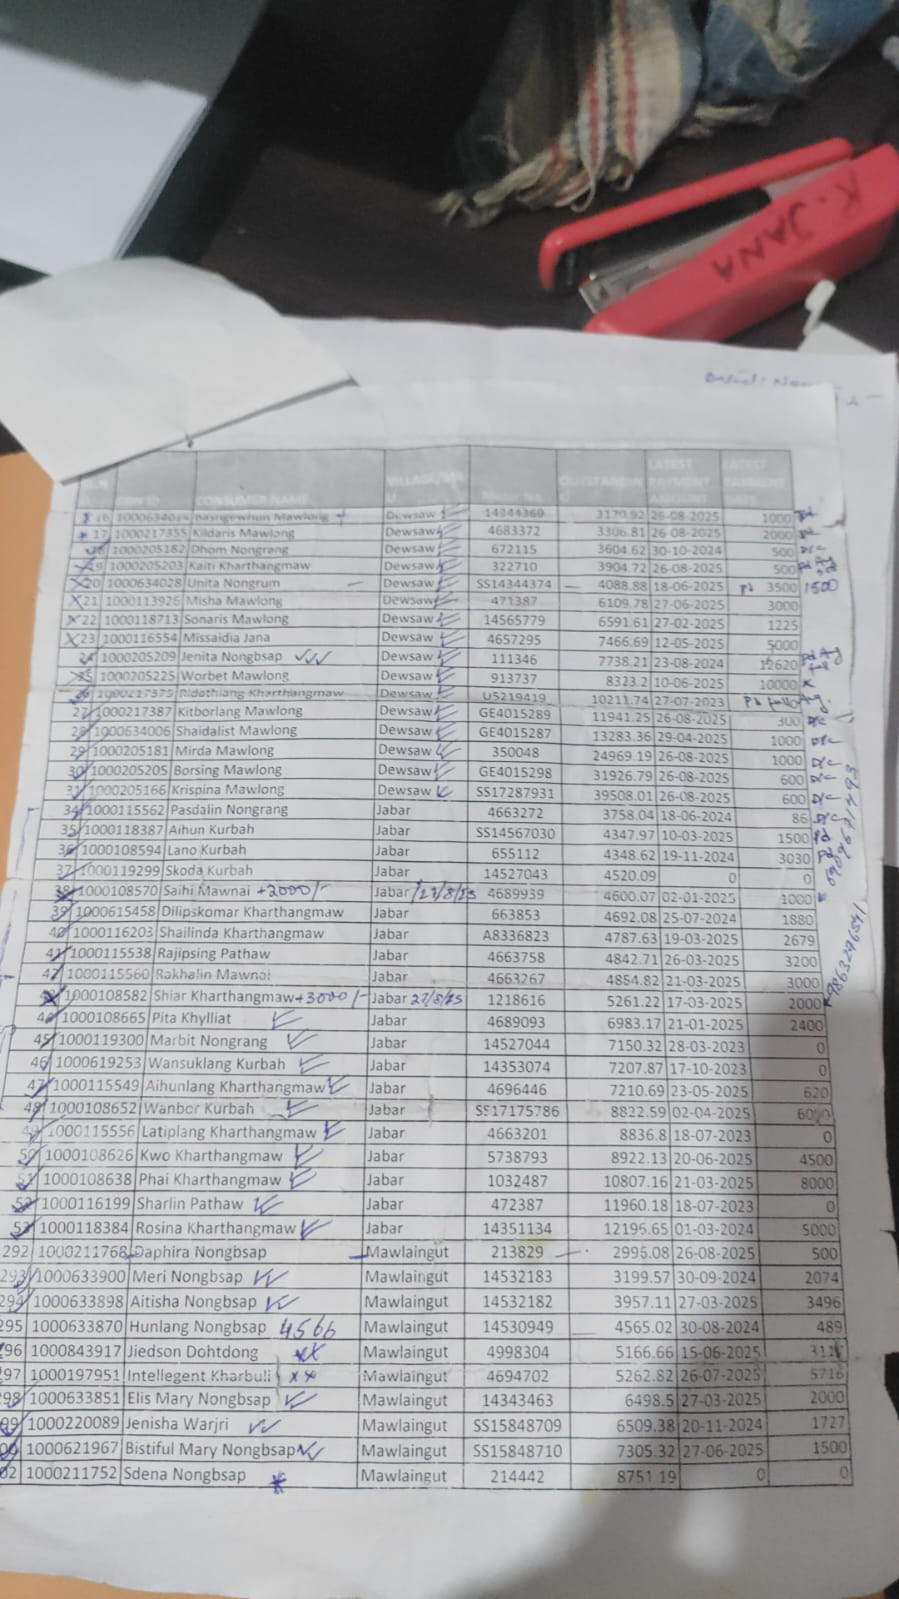 K. JANA
CONSUMER NAME OUTSTANDING LATEST PAYMENT AMOUNT LATEST PAYMENT DATE
16 Mawlong Dewsaw 14344360 3170.92 26-08-2025 1000 pd
17 1000217355 Kildaris Mawlong Dewsaw 4683372 3306.81 26-08-2025 2000 pd
1000205182 Dhom Nongrang Dewsaw 672115 3604.62 30-10-2024 500 D/C
19 1000205203 Kaiti Kharthangmaw Dewsaw 322710 3904.72 26-08-2025 500
20 1000634028 Unita Nongrum Dewsaw SS14344374 4088.88 18-06-2025 pd 3500 1500
21 1000113926 Misha Mawlong Dewsaw 471387 6109.78 27-06-2025 3000
22 1000118713 Sonaris Mawlong Dewsaw 14565779 6591.61 27-02-2025 1225
23 1000116554 Missaidia Jana Dewsaw 4657295 7466.69 12-05-2025 5000
24 1000205209 Jenita Nongbsap Dewsaw 111346 7738.21 23-08-2024 12620
1000205225 Worbet Mawlong Dewsaw 913737 8323.2 10-06-2025 10000
1000217375 Ridathiang Kharthangmaw Dewsaw U5219419 10211.74 27-07-2023
27 1000217387 Kitborlang Mawlong Dewsaw GE4015289 11941.25 26-08-2025 300 D/C
28 1000634006 Shaidalist Mawlong Dewsaw GE4015287 13283.36 29-04-2025 1000 D/C
29 1000205181 Mirda Mawlong Dewsaw 350048 24969.19 26-08-2025 1000 D/C
30 1000205205 Borsing Mawlong Dewsaw GE4015298 31926.79 26-08-2025 600 D/C
31 1000205166 Krispina Mawlong Dewsaw SS17287931 39508.01 26-08-2025 600 D/C
34 1000115562 Pasdalin Nongrang Jabar 4663272 3758.04 18-06-2024 86 D/C
35 1000118387 Aihun Kurbah Jabar SS14567030 4347.97 10-03-2025 1500 pd
36 1000108594 Lano Kurbah Jabar 655112 4348.62 19-11-2024 3030
37 1000119299 Skoda Kurbah Jabar 14527043 4520.09 0 0
38 1000108570 Saihi Mawnai +2000/- Jabar /27/8/25 4689939 4600.07 02-01-2025 1000
39 1000615458 Dilipskomar Kharthangmaw Jabar 663853 4692.08 25-07-2024 1880
40 1000116203 Shailinda Kharthangmaw Jabar A8336823 4787.63 19-03-2025 2679
41 1000115538 Rajipsing Pathaw Jabar 4663758 4842.71 26-03-2025 3200
42 1000115560 Rakhalin Mawnai Jabar 4663267 4854.82 21-03-2025 3000
1000108582 Shiar Kharthangmaw +3000/- Jabar 27/8/25 1218616 5261.22 17-03-2025 2000
44 1000108665 Pita Khylliat Jabar 4689093 6983.17 21-01-2025 2400
45 1000119300 Marbit Nongrang Jabar 14527044 7150.32 28-03-2023 0
46 1000619253 Wansuklang Kurbah Jabar 14353074 7207.87 17-10-2023 0
47 1000115549 Aihunlang Kharthangmaw Jabar 4696446 7210.69 23-05-2025 620
48 1000108652 Wanbor Kurbah Jabar SS17175786 8822.59 02-04-2025 6000
49 1000115556 Latiplang Kharthangmaw Jabar 4663201 8836.8 18-07-2023 0
50 1000108626 Kwo Kharthangmaw Jabar 5738793 8922.13 20-06-2025 4500
51 1000108638 Phai Kharthangmaw Jabar 1032487 10807.16 21-03-2025 8000
52 1000116199 Sharlin Pathaw Jabar 472387 11960.18 18-07-2023 0
53 1000118384 Rosina Kharthangmaw Jabar 14351134 12195.65 01-03-2024 5000
292 1000211768 Daphira Nongbsap Mawlaingut 213829 2995.08 26-08-2025 500
293 1000633900 Meri Nongbsap Mawlaingut 14532183 3199.57 30-09-2024 2074
294 1000633898 Aitisha Nongbsap Mawlaingut 14532182 3957.11 27-03-2025 3496
295 1000633870 Hunlang Nongbsap 4566 Mawlaingut 14530949 4565.02 30-08-2024 489
96 1000843917 Jiedson Dohtdong xx Mawlaingut 4998304 5166.66 15-06-2025
97 1000197951 Intellegent Kharbuli xx Mawlaingut 4694702 5262.82 26-07-2025 5716
98 1000633851 Elis Mary Nongbsap Mawlaingut 14343463 6498.5 27-03-2025 2000
99 1000220089 Jenisha Warjri Mawlaingut SS15848709 6509.38 20-11-2024 1727
1000621967 Bistiful Mary Nongbsap Mawlaingut SS15848710 7305.32 27-06-2025 1500
02 1000211752 Sdena Nongbsap * Mawlaingut 214442 8751.19 0 0